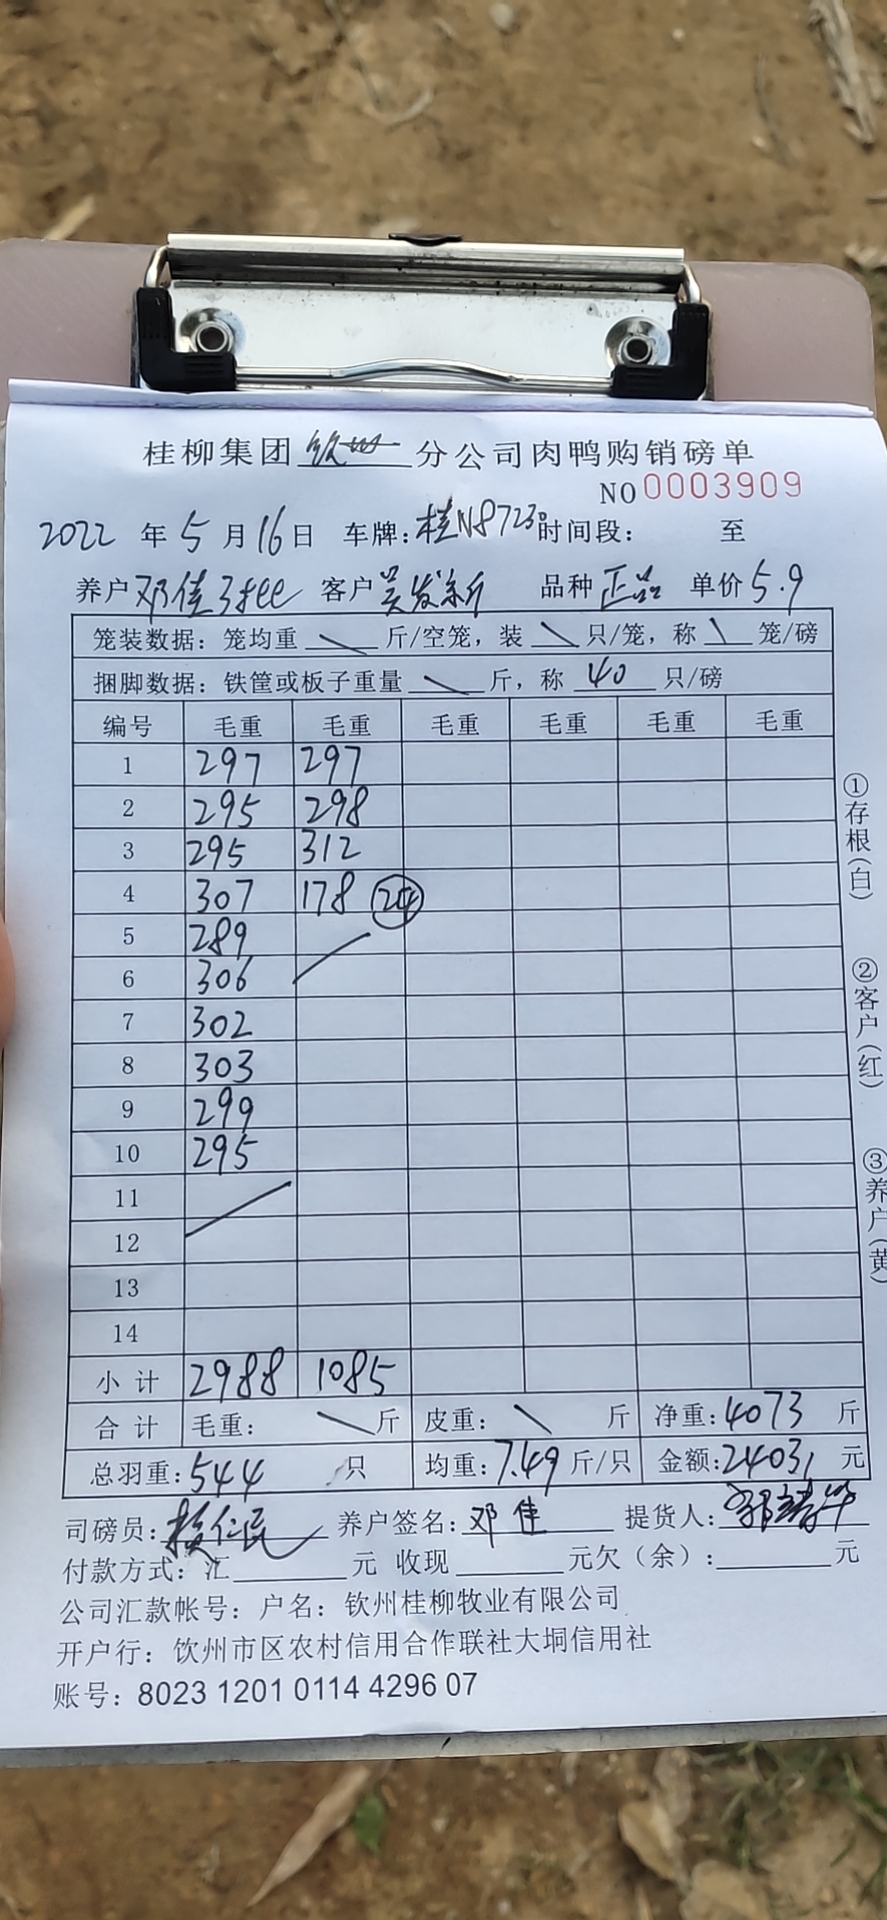 桂柳集团 钦州 分公司肉鸭购销磅单
NO 0003909
2022 年 5 月 16 日 车牌：桂N8723 时间段： 至
养户 邓佳 客户 吴发新 品种 正品 单价 5.9
笼装数据：笼均重 \ 斤/空笼，装 \ 只/笼，称 \ 笼/磅
捆脚数据：铁筐或板子重量 \ 斤，称 40 只/磅
编号 毛重 毛重 毛重 毛重 毛重 毛重
1 297 297
2 295 298
3 295 312
4 307 178 24
5 289
6 306
7 302
8 303
9 299
10 295
11
12
13
14
小计 2988 1085
合计 毛重： \ 斤 皮重： \ 斤 净重：4073 斤
总羽重：544 只 均重：7.49 斤/只 金额：24031 元
司磅员： 养户签名：邓佳 提货人：
付款方式：汇 元 收现 元欠（余）： 元
公司汇款帐号：户名：钦州桂柳牧业有限公司
开户行：钦州市区农村信用合作联社大垌信用社
账号：8023 1201 0114 4296 07
①存根（白）
②客户（红）
③养户（黄）